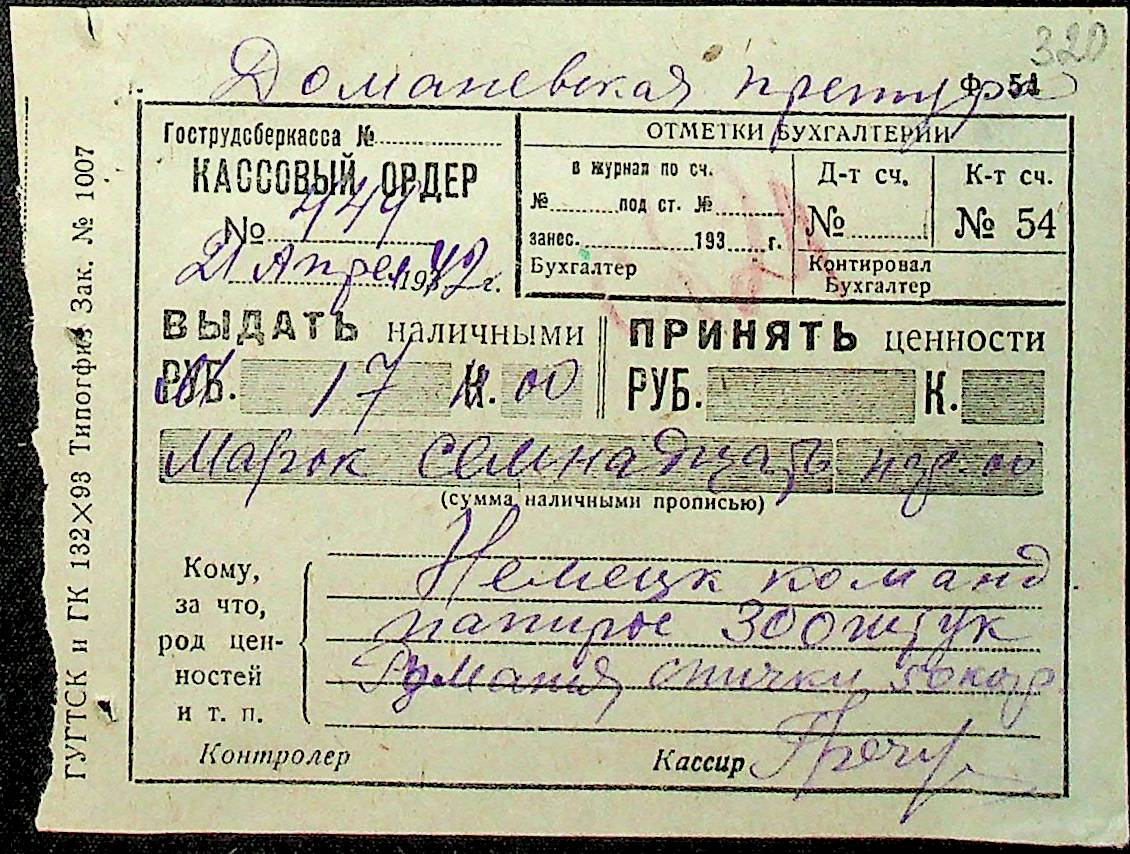 320
Доманевская претура
Ф. 54
Гострудсберкасса №
КАССОВЫЙ ОРДЕР
№ 449
21 Апрел 1942 г.
ОТМЕТКИ БУХГАЛТЕРИИ
в журнал по сч.
№ под ст. №
занес. 193 г.
Бухгалтер
Д-т сч.
№
К-т сч.
№ 54
Контировал
Бухгалтер
ВЫДАТЬ наличными
РУБ. 17 К. 00
ПРИНЯТЬ ценности
РУБ. К.
Марок семнадцать 00
(сумма наличными прописью)
Кому,
за что,
род цен-
ностей
и т. п.
Немецк команд
папирос 300 штук
спички
Контролер
Кассир
ГУГТСК и ГК 132×93 Типогфия Зак. № 1007